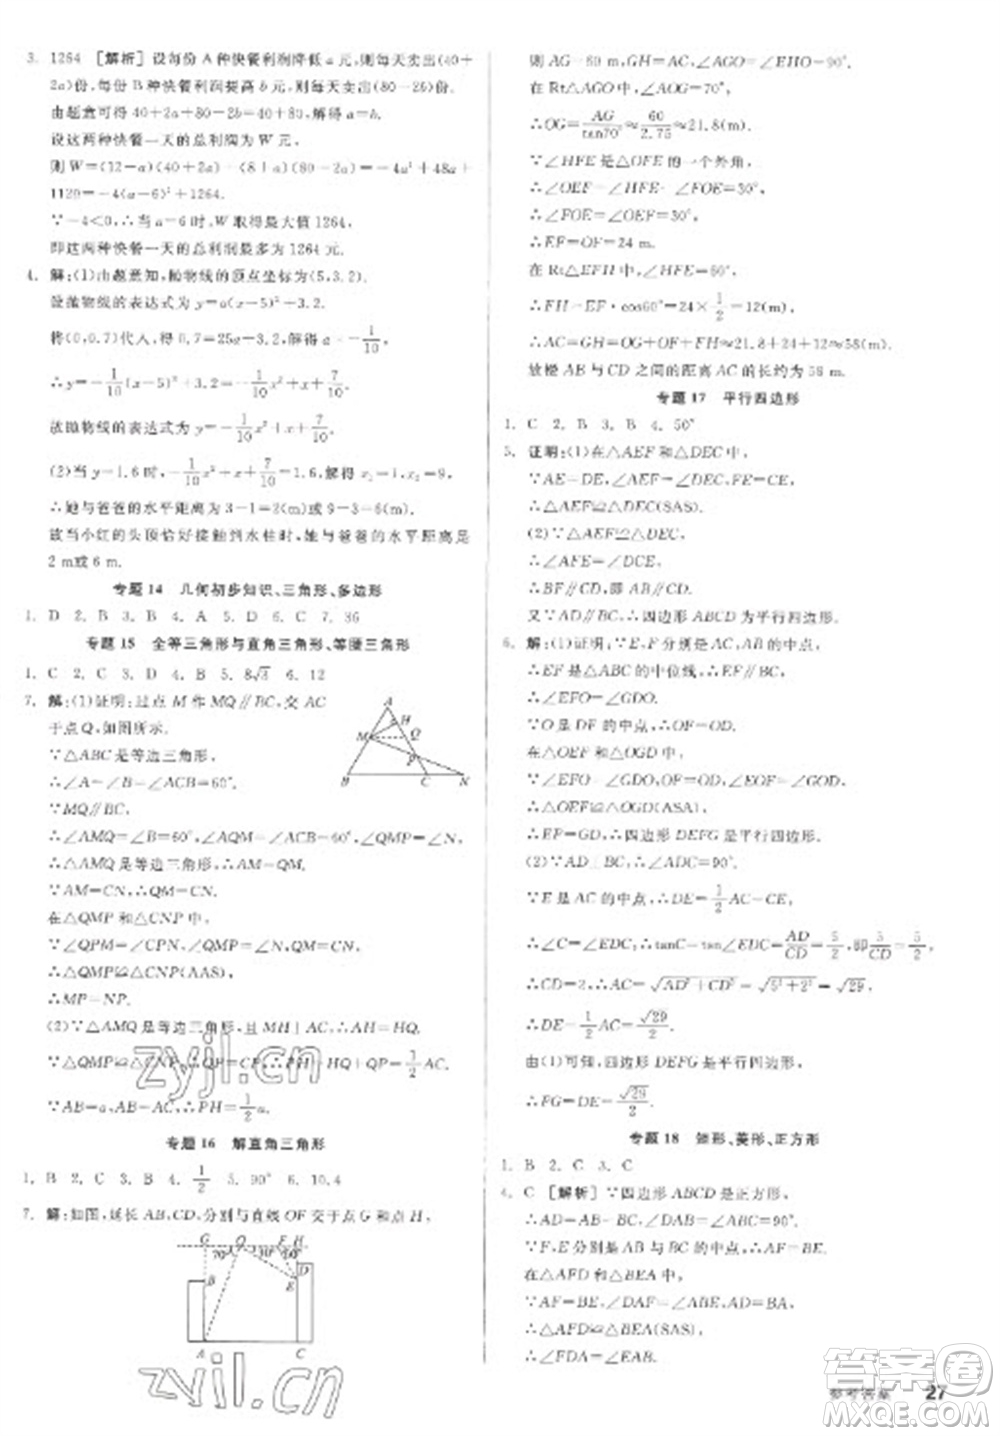 3. 1264 [解析]设每份A种快餐利润降低a元,则每天卖出(40+
2a)份,每份B种快餐利润提高b元,则每天卖出(80-2b)份.
由题意可得40+2a+80-2b=40+80,解得a=b.
设这两种快餐一天的总利润为W元.
则W=(12-a)(40+2a)+(8+a)(80-2a)=-4a²+48a+
1120=-4(a-6)²+1264.
∵-4<0,∴当a=6时,W取得最大值1264,
即这两种快餐一天的总利润最多为1264元.
4. 解:(1)由题意知,抛物线的顶点坐标为(5,3.2),
设抛物线的表达式为y=a(x-5)²+3.2,
将(0,0.7)代入,得0.7=25a+3.2,解得a=-1/10,
∴y=-1/10(x-5)²+3.2=-1/10x²+x+7/10,
故抛物线的表达式为y=-1/10x²+x+7/10.
(2)当y=1.6时,-1/10x²+x+7/10=1.6,解得x₁=1,x₂=9,
∴她与爸爸的水平距离为3-1=2(m)或9-3=6(m).
故当小红的头顶恰好接触到水柱时,她与爸爸的水平距离
为2 m或6 m.
专题14 几何初步知识、三角形、多边形
1. D 2. B 3. B 4. B 5. D 6. C 7. 36
专题15 全等三角形与直角三角形、等腰三角形
1. C 2. C 3. D 4. B 5. 8√3 6. 12
7. 解:(1)证明:过点M作MQ∥BC,交AC
于点Q,如图所示.
∵△ABC是等边三角形,
∴∠A=∠B=∠ACB=60°.
∵MQ∥BC,
∴∠AMQ=∠B=60°,∠AQM=∠ACB=60°,∠QMP=∠N,
∴△AMQ是等边三角形,∴AM=QM.
∵AM=CN,∴QM=CN.
在△QMP和△CNP中,
∵∠QPM=∠CPN,∠QMP=∠N,QM=CN,
∴△QMP≌△CNP(AAS),
∴MP=NP.
(2)∵△AMQ是等边三角形,且MH⊥AC,∴AH=HQ.
∵△QMP≌△CNP,∴QP=CP,∴PH=HQ+QP=1/2AC.
∵AB=a,AB=AC,∴PH=1/2a.
A
H
M
Q
P
B
C
N
专题16 解直角三角形
1. B 2. C 3. B 4. 1/2 5. 90° 6. 10.4
7. 解:如图,延长AB,CD,分别与直线OF交于点G和点H,
G
O
F
H
70°
60°
D
B
E
A
C
则AG=60 m,GH=AC,∠AGO=∠EHO=90°.
在Rt△AGO中,∠AOG=70°,
∴OG=AG/tan70°≈60/2.75≈21.8(m).
∵∠HFE是△OFE的一个外角,
∴∠OEF=∠HFE-∠FOE=30°,
∴∠FOE=∠OEF=30°,
∴OF=EF=24 m.
在Rt△EFH中,∠HFE=60°,
∴FH=EF·cos60°=24×1/2=12(m),
∴AC=GH=OG+OF+FH≈21.8+24+12≈58(m).
故楼AB与CD之间的距离AC的长约为58 m.
专题17 平行四边形
1. C 2. B 3. B 4. 50°
5. 证明:(1)在△AEF和△DEC中,
∵AE=DE,∠AEF=∠DEC,EF=EC,
∴△AEF≌△DEC(SAS).
(2)∵△AEF≌△DEC,
∴∠AFE=∠DCE,
∴BF∥CD,即AB∥CD.
又∵AD∥BC,∴四边形ABCD为平行四边形.
6. 解:(1)证明:∵E,F分别是AC,AB的中点,
∴EF是△ABC的中位线,∴EF∥BC,
∴∠EFO=∠GDO.
∵O是DF的中点,∴OF=OD.
在△OEF和△OGD中,
∵∠EFO=∠GDO,OF=OD,∠EOF=∠GOD,
∴△OEF≌△OGD(ASA),
∴EF=GD,∴四边形DEFG是平行四边形.
(2)∵AD⊥BC,∴∠ADC=90°.
∵E是AC的中点,∴DE=1/2AC=CE,
∴∠C=∠EDC,∴tanC=tan∠EDC=AD/CD=5/2,即5/CD=5/2,
∴CD=2,∴AC=√AD²+CD²=√5²+2²=√29,
∴DE=1/2AC=√29/2.
由(1)可知,四边形DEFG是平行四边形,
∴FG=DE=√29/2.
专题18 矩形、菱形、正方形
1. B 2. C 3. C
4. C [解析]∵四边形ABCD是正方形,
∴AD=AB=BC,∠DAF=∠ABC=90°.
∵F,E分别是AB与BC的中点,
∴AF=BE.
在△AFD和△BEA中,
∵AF=BE,∠DAF=∠ABE,AD=BA,
∴△AFD≌△BEA(SAS),
∴∠FDA=∠EAB.
参考答案 27
zyjl.cn
zyjl.cn
答案圈
MXQE.COM